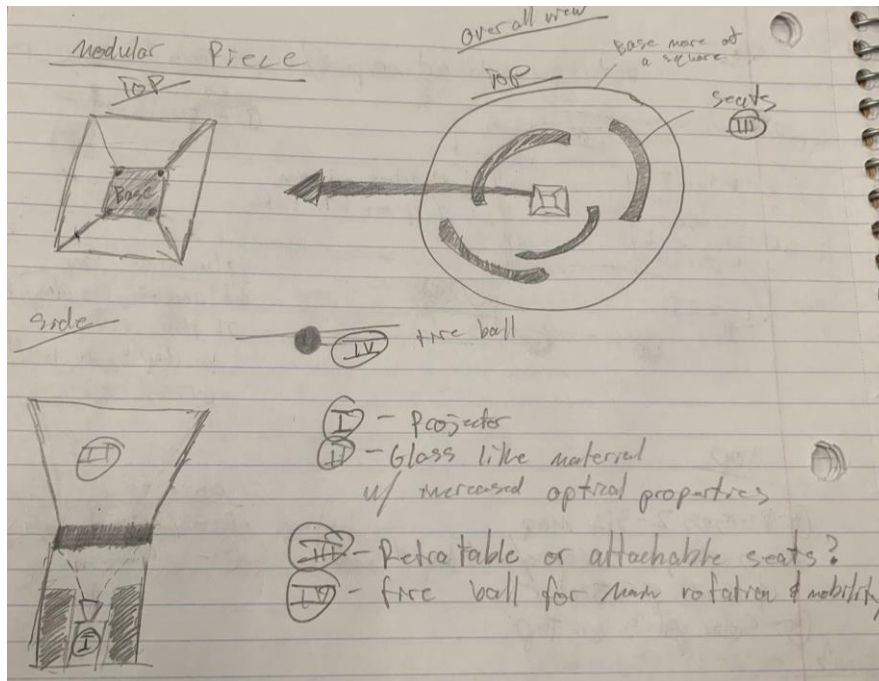 Modular Piece
Top
Base
Overall view
Base more of
a square
Top
seats
III
side
IV tire ball
II
I
I - Projector
II - Glass like material
w/ increased optical properties
III - Retratable or attachable seats?
IV - tire ball for main rotation & mobility